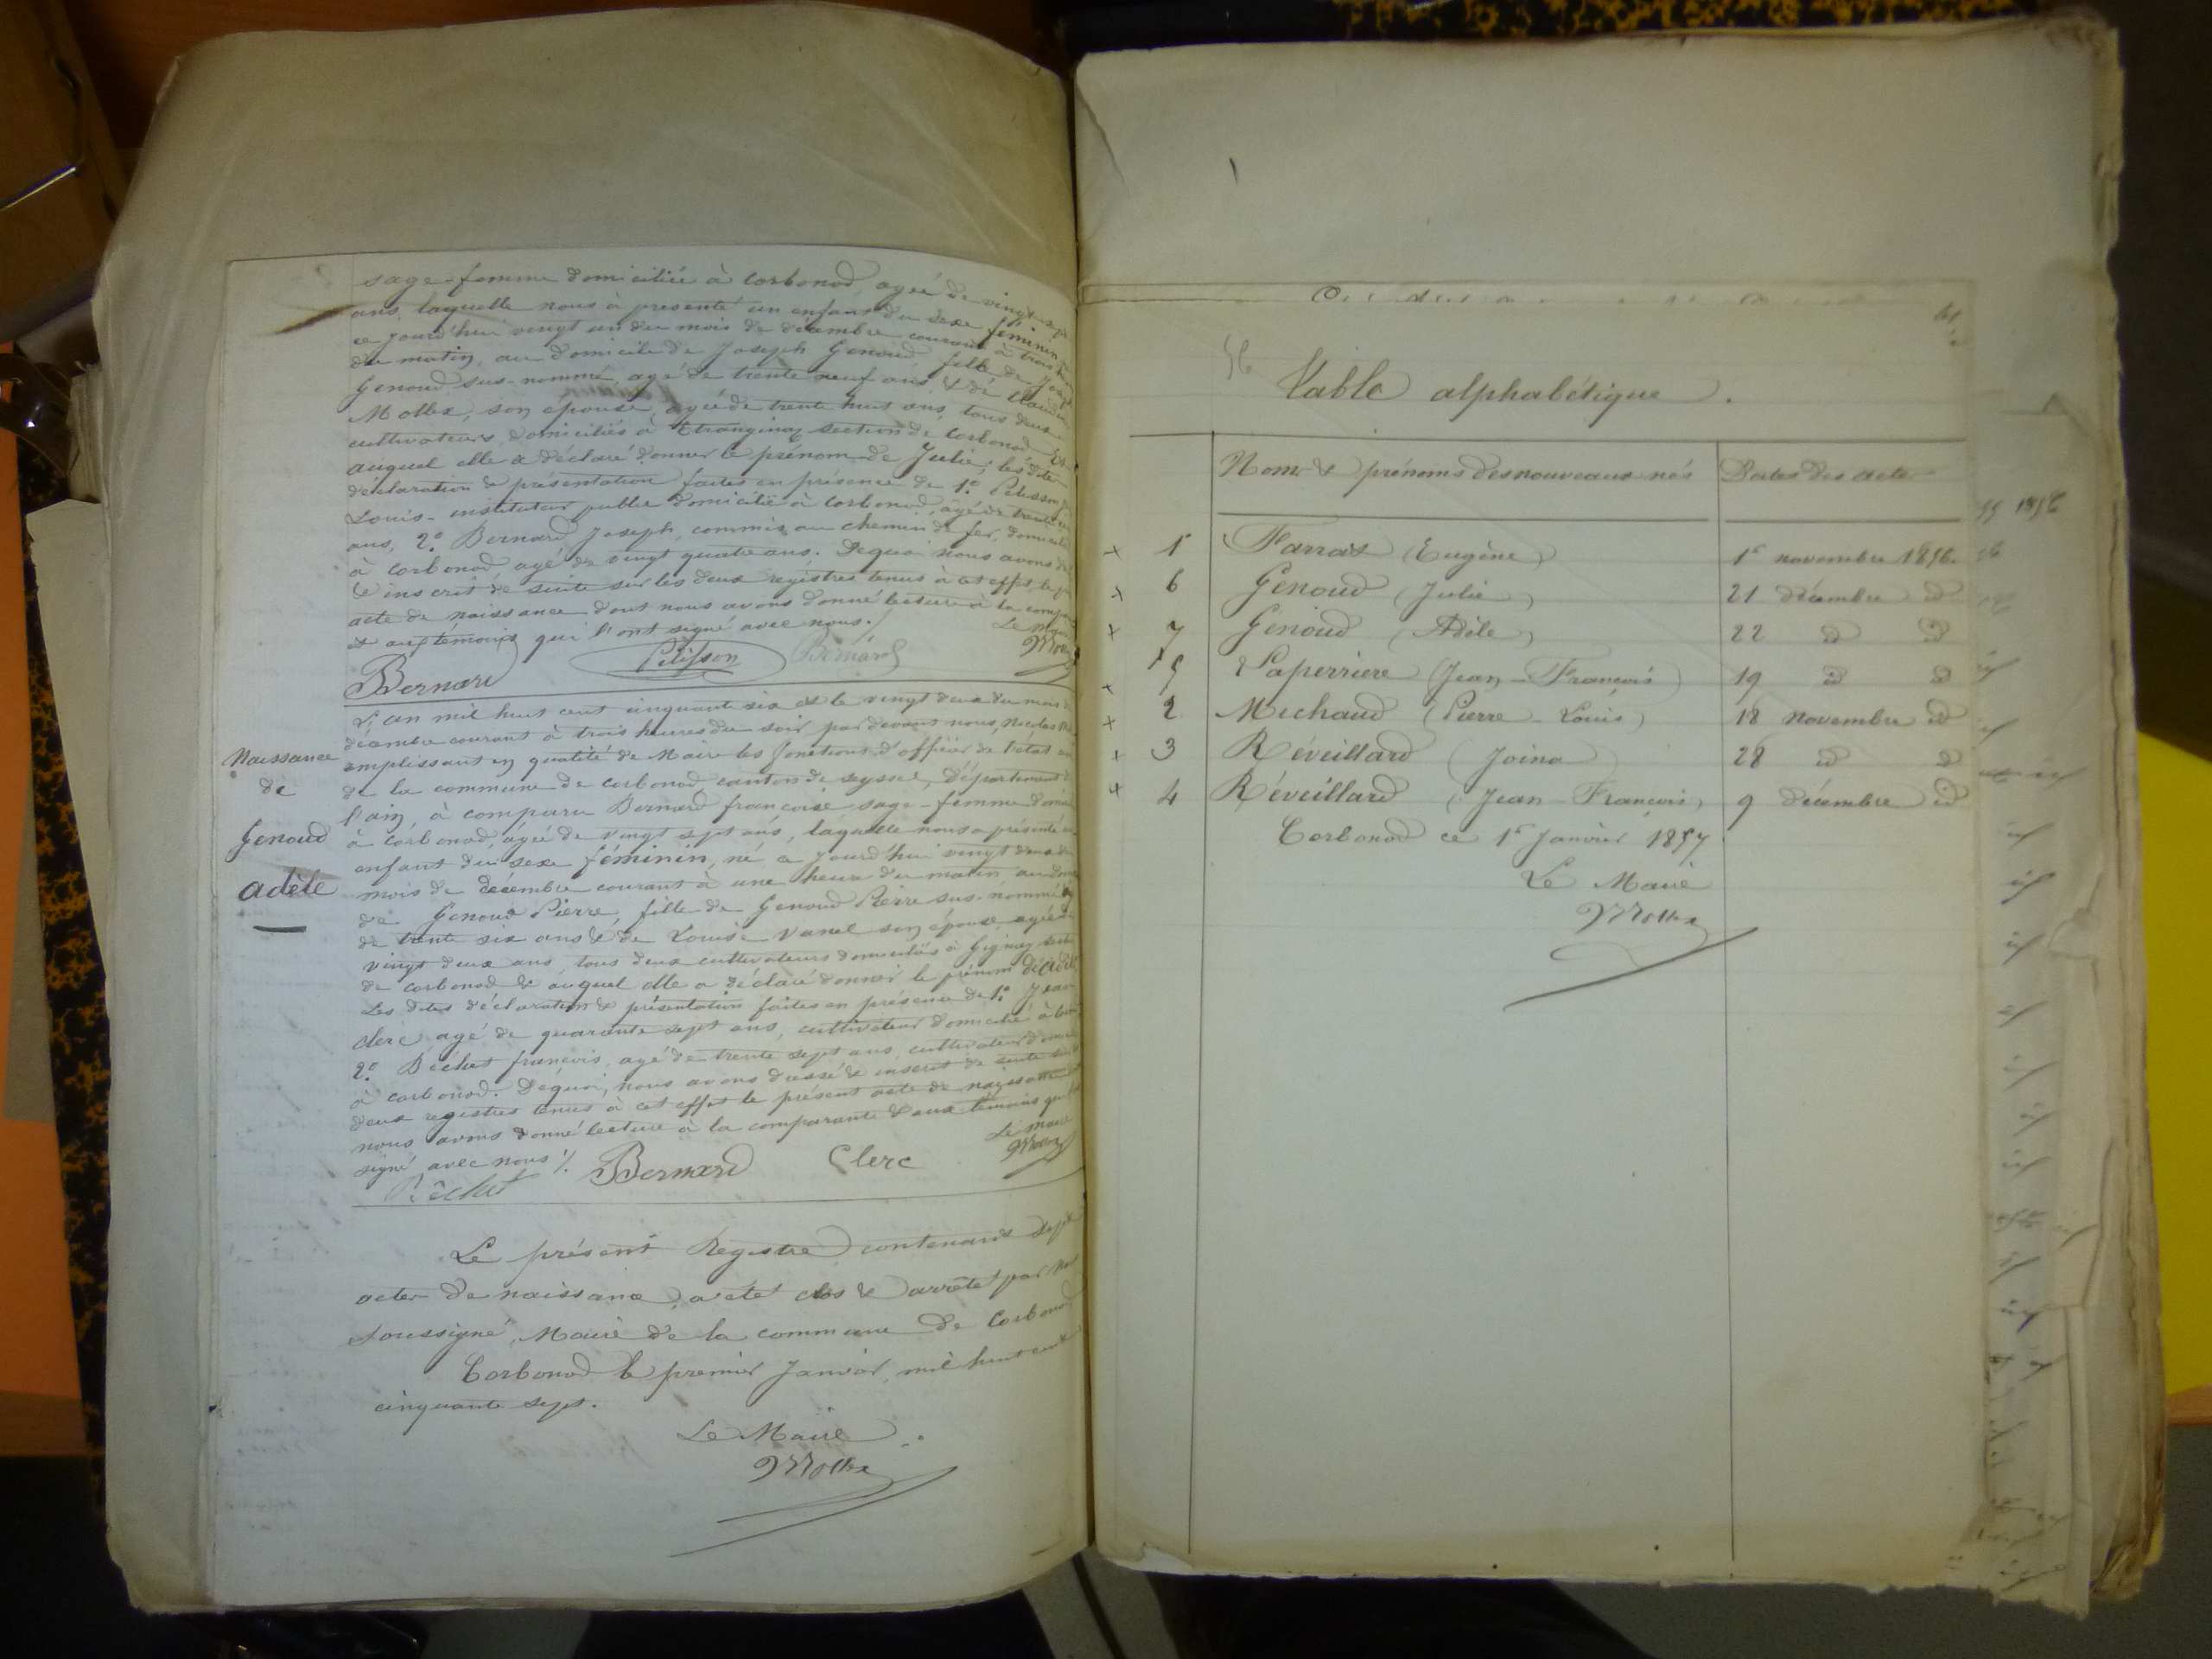 sage-femme domiciliée à Corbonod, agée de vingt sept
ans, laquelle nous à presenté un enfant du sexe féminin
ce jourd'hui vingt un du mois de décembre courant à trois
du matin, au domicile de Joseph Genoud, fille de Joseph
Genoud sus-nommé, agé de trente neuf ans, & de Claudine
Mollex, son epouse, agée de trente huit ans, tous deux
cultivateurs, domiciliés à Etranginaz section de Corbonod &
auquel elle a déclaré donner le prénom de Julie; les dites
déclaration & présentation faites en présence de 1.° Pelisson
Louis - instituteur public domicilié à Corbonod, agé de trente
ans, 2.° Bernard Joseph, commis au chemin de fer, domicilié
à Corbonod agé de vingt quatre ans. Dequoi nous avons
& inscrit de suite sur les deux registres tenus à cet effet, le
acte de naissance dont nous avons donné lecture à la
et aux témoins qui l'ont signé avec nous./
Le maire
Bernard Pelisson Bernard
L'an mil huit cent cinquante six & le vingt deux du mois de
décembre courant à trois heures du soir, par devant nous,
remplissant en qualité de Maire les fonctions d'officier de l'état
de la commune de Corbonod canton de Seyssel, département de
l'ain, à comparu Bernard françoise sage-femme
à Corbonod, agée de vingt sept ans, laquelle nous a présenté un
enfant du sexe féminin, né ce jourd'hui vingt deux du
mois de décembre courant à une heure du matin au
de Genoud Pierre, fille de Genoud Pierre sus-nommé
de trente six ans & de Louise Vanel son épouse, agée de
vingt deux ans, tous deux cultivateurs domiciliés à Gignez
de Corbonod & auquel elle a déclaré donner le prénom d'Adèle
Les dites déclaration & présentation faites en présence de 1.° Jean
Clerc agé de quarante sept ans, cultivateur domicilié à
2.° Béchet françois, agé de trente sept ans, cultivateur
à Corbonod. Dequoi, nous avons dressé & inscrit de suite
deux registres tenus à cet effet le présent acte de naissance
nous avons donné lecture à la comparante & aux témoins qui
signé avec nous ./.
Naissance
de
Genoud
adèle
Le maire
Béchet Bernard Clerc
Le présent Registre contenant sept
actes de naissance, a été clos & arrêté par nous
soussigné, Maire de la commune de Corbonod
Corbonod le premier Janvier, mil huit cent
cinquante sept.
Le Maire
Mollex
56
Table alphabétique.
Noms & prénoms des nouveaux nés Dates des actes
1 Farraz (Eugène) 1er novembre 1856.
6 Genoud (Julie) 21 décembre id
7 Genoud (Adèle) 22 id id
5 Laperriere (Jean-François) 19 id id
2 Michaud (Pierre-Louis) 18 novembre id
3 Réveillard (Joina) 28 id id
4 Réveillard (Jean François) 9 décembre id
Corbonod ce 1er Janvier 1857
Le Maire
Mollex